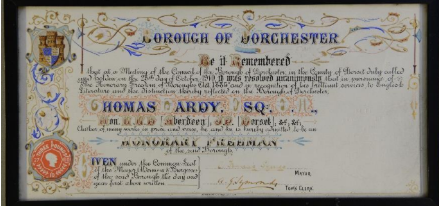 BOROUGH OF DORCHESTER
Be it Remembered
that at a Meeting of the Council of the Borough of Dorchester, in the County of Dorset duly called
and holden on the day of October, 1910 it was resolved unanimously that in pursuance of
"The Honorary Freedom of Boroughs Act 1885" and in recognition of his brilliant services to English
Literature and the distinction thereby reflected on the Borough of Dorchester
THOMAS HARDY, ESQ. O.M.,
Hon. L.L.D. (Aberdeen), J.P. (Dorset), &c, &c,
Author of many works in prose and verse, be and he is hereby admitted to be an
HONORARY FREEMAN
of the said Borough
GIVEN under the Common Seal
of the Mayor Aldermen & Burgesses
of the said Borough the day and
year first above written
MAYOR
TOWN CLERK